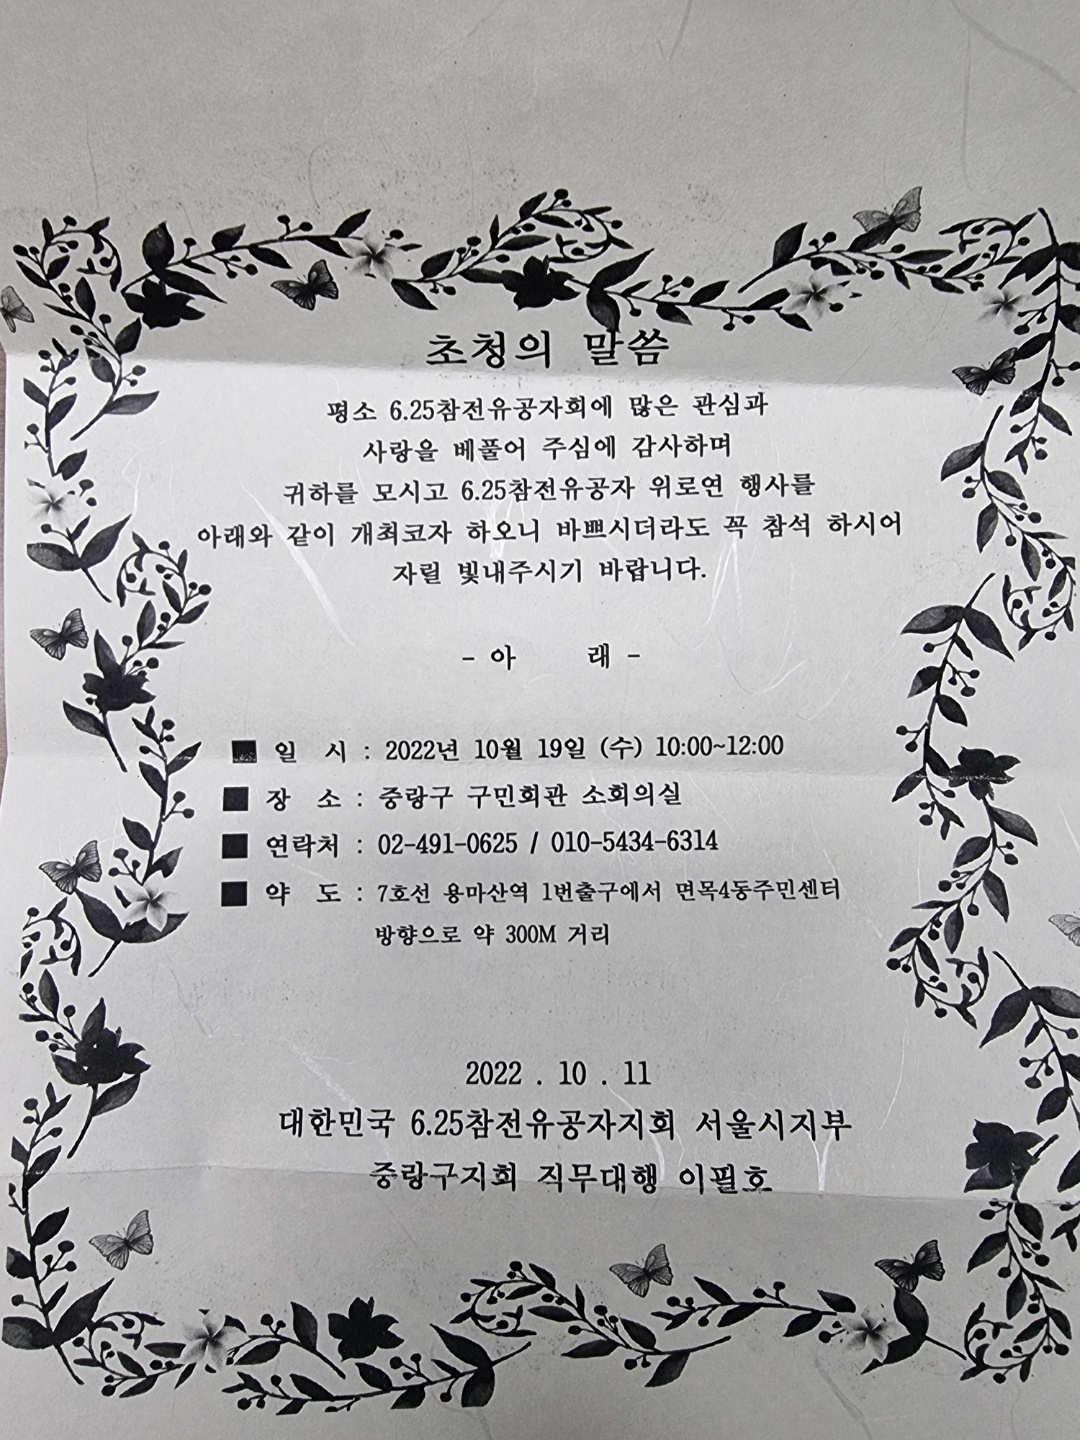 초청의 말씀
평소 6.25참전유공자회에 많은 관심과
사랑을 베풀어 주심에 감사하며
귀하를 모시고 6.25참전유공자 위로연 행사를
아래와 같이 개최코자 하오니 바쁘시더라도 꼭 참석 하시어
자릴 빛내주시기 바랍니다.
- 아 래 -
■ 일 시 : 2022년 10월 19일 (수) 10:00~12:00
■ 장 소 : 중랑구 구민회관 소회의실
■ 연락처 : 02-491-0625 / 010-5434-6314
■ 약 도 : 7호선 용마산역 1번출구에서 면목4동주민센터
방향으로 약 300M 거리
2022 . 10 . 11
대한민국 6.25참전유공자지회 서울시지부
중랑구지회 직무대행 이필호